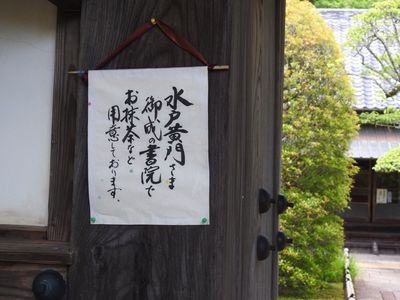 水戸黄門さま
御成の書院で
お抹茶など
用意しております。